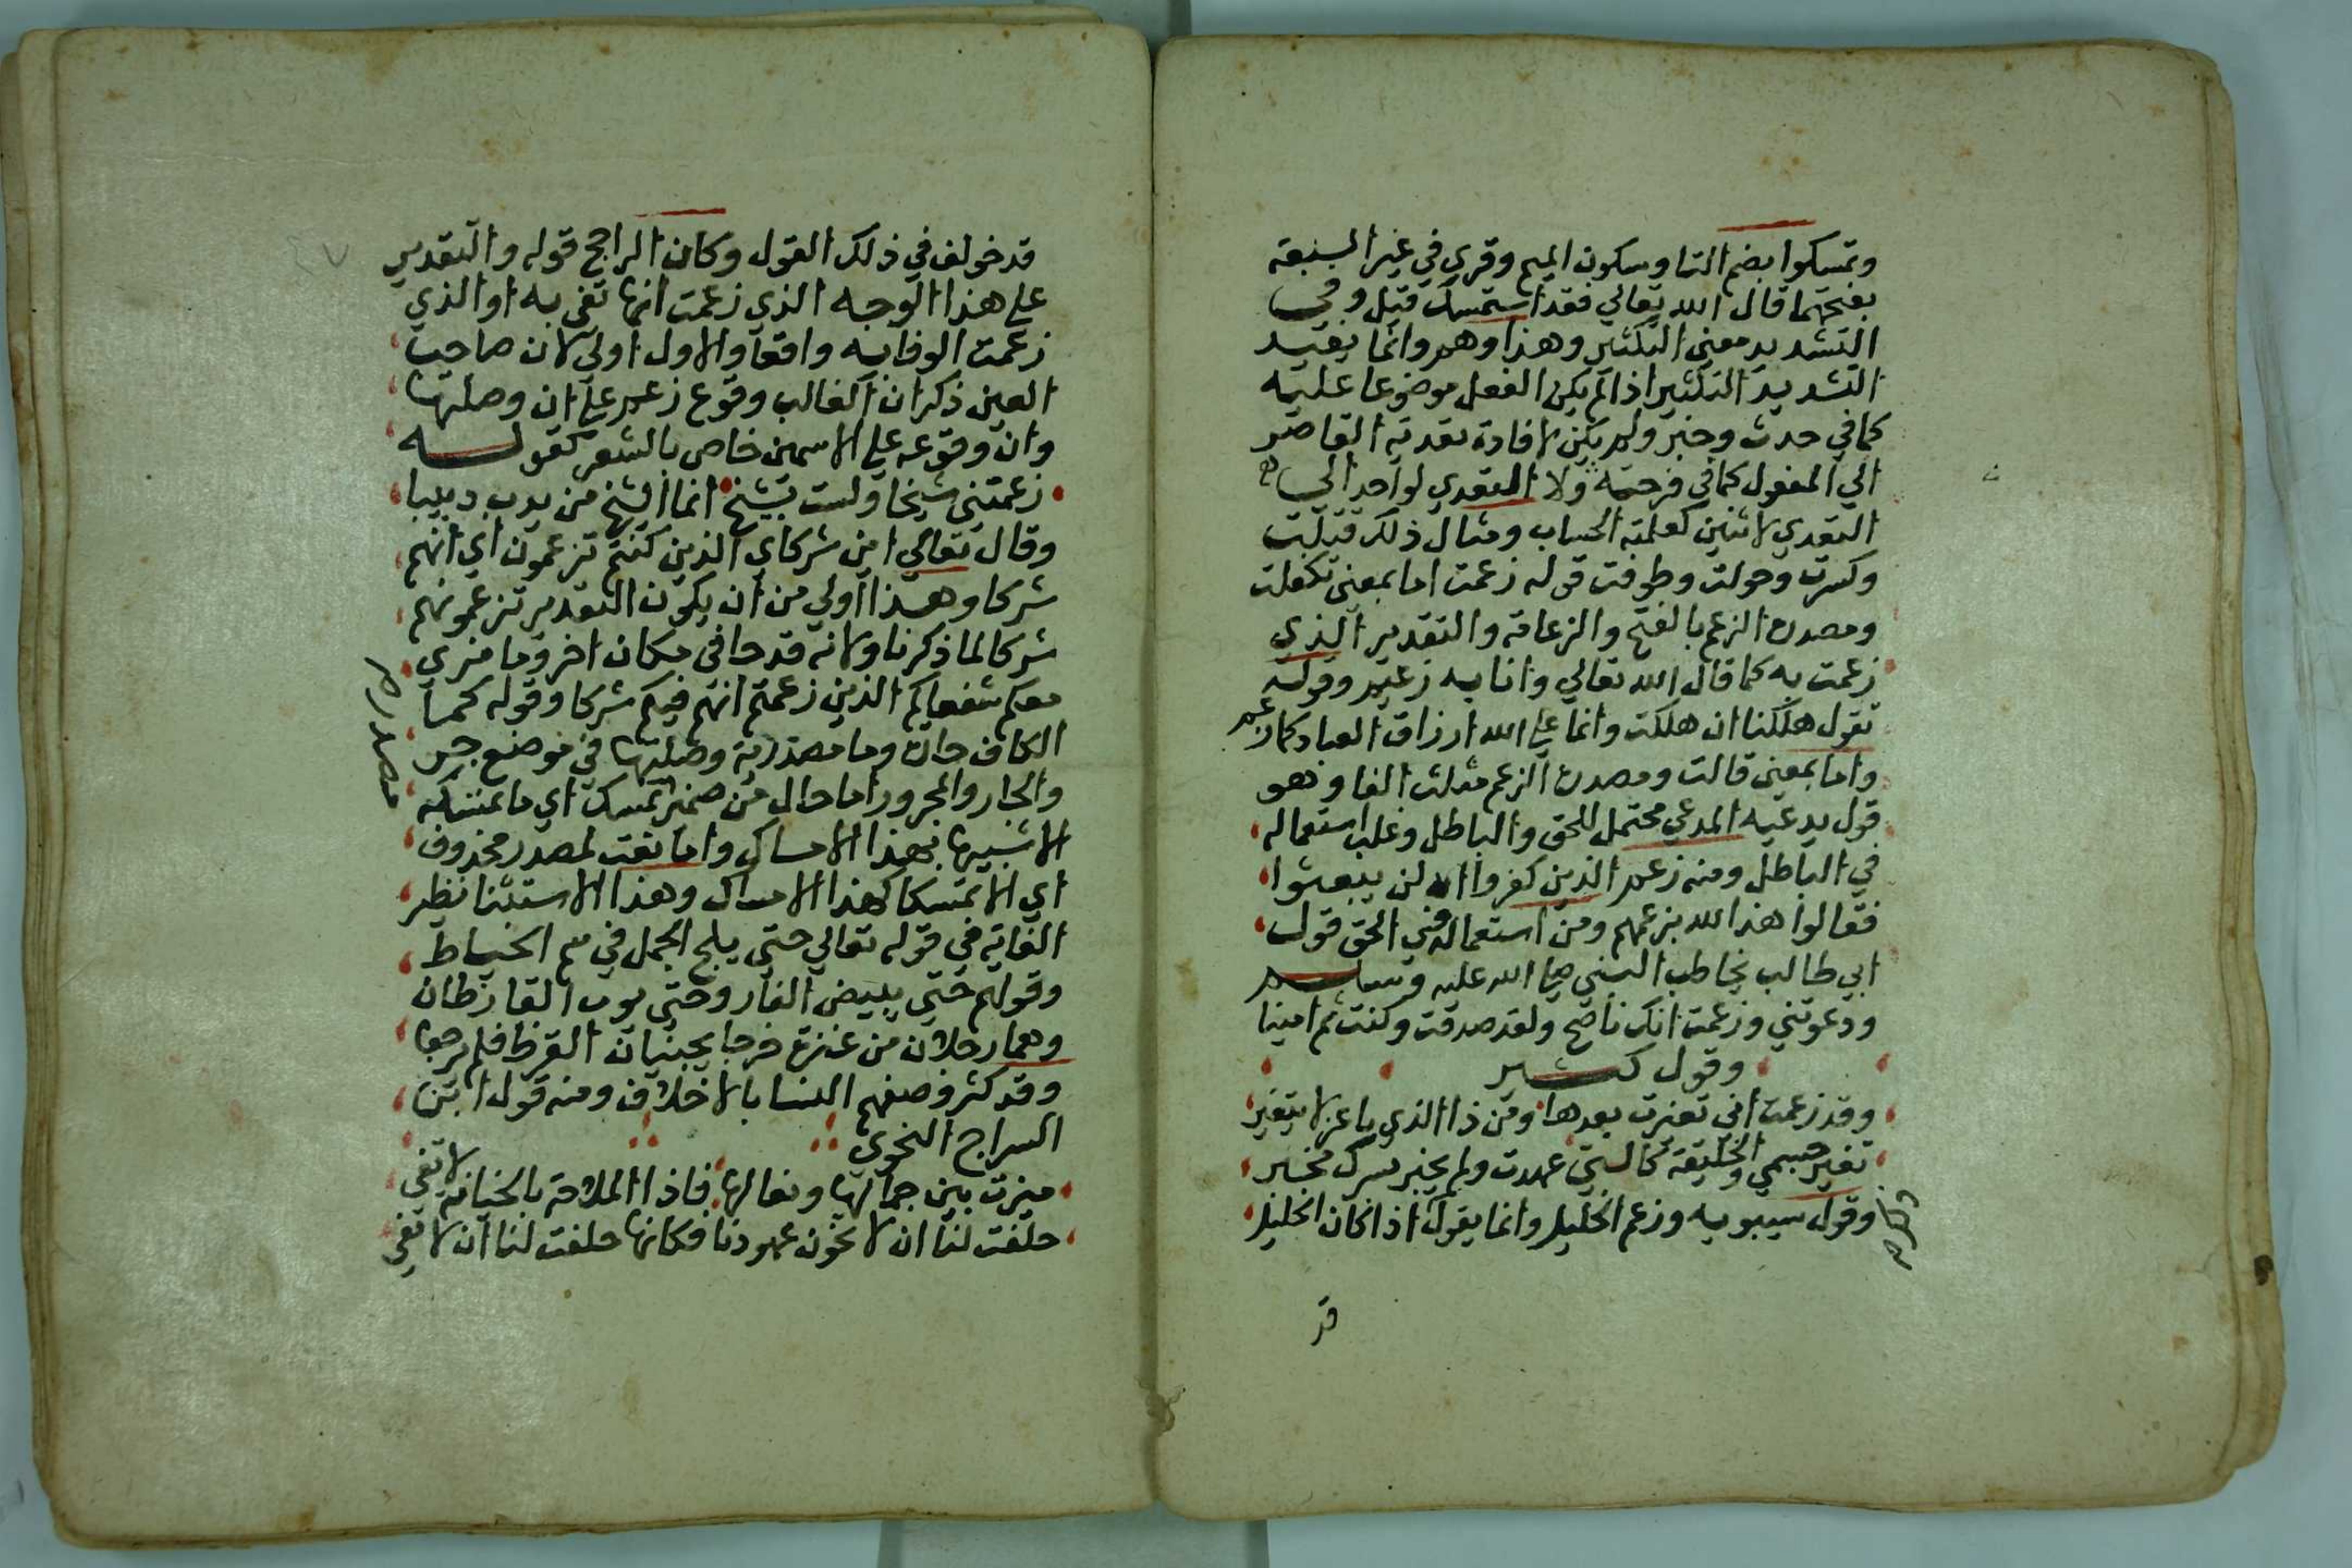 وتمسكوا بضم التا وسكون الميم وقري في غير السبعة
بفتحهما قال الله تعالي فقد استمسك قيل وفي
التشديد معني التكثير وهذا وهم وانما يفيد
التشديد التكثير اذا لم يكن الفعل موضوعا عليه
كما في حدث وخبر ولم يكن لافادة تعدية القاصر
الي المفعول كما في فرحته ولا المتعدي لواحد الي
التعدي لاثنين كعلمته الحساب ومثال ذلك قتلت
وكسرت وجولت وطوفت قوله زعمت اما بمعني تكفلت
ومصدره الزعم بالفتح والزعامة والتقدير الذي
زعمت به كما قال الله تعالي وانا به زعيم وقوله
تقول هلكنا ان هلكت وانما علي الله ارزاق العباد كما زعم
واما بمعني قالت ومصدره الزعم مثلث الفا وهو
قول يدعيه المدعي محتمل للحق والباطل وغلب استعماله
في الباطل ومنه زعم الذين كفروا ان لن يبعثوا
فقالوا هذا لله بزعمهم ومن استعماله في الحق قول
ابي طالب يخاطب النبي صلي الله عليه وسلم
ودعوتني وزعمت انك ناصح ولقد صدقت وكنت ثم امينا
وقول كثير
وقد زعمت اني تغيرت بعدها ومن ذا الذي يا عز لا يتغير
تغير جسمي والخليقة كالتي عهدت ولم يخبر بسرك مخبر
وقول سيبويه وزعم الخليل وانما يقول اذا كان الخليل
قد
قد خولف في ذلك القول وكان الراجح قوله والتقدير
علي هذا الوجه الذي زعمت انها تفي به او الذي
زعمت الوفا به واقعا والاول اولي لان صاحب
العين ذكر ان الغالب وقوع زعم علي ان وصلتها
وان وقوعه علي الاسمين خاص بالشعر كقوله
زعمتني شيخا ولست بشيخ انما الشيخ من يدب دبيبا
وقال تعالي اين شركاي الذين كنتم تزعمون اي انهم
شركا وهذا اولي من ان يكون التقدير تزعمونهم
شركا لما ذكرنا ولانه قد جا في مكان اخر وما نري
معكم شفعاكم الذين زعمتم انهم فيكم شركا وقوله كما
الكاف جارة وما مصدرية وصلتها في موضع جر
مصدرية
والجار والمجرور اما حال من ضمير تمسك اي ما تمسكه
الا شبيها بهذا الامساك واما نعت لمصدر محذوف
اي الا تمسكا كهذا الامساك وهذا الاستثنا نظير
الغاية في قوله تعالي حتي يلج الجمل في سم الخياط
وقولهم حتي يبيض القار وحتي يوب القارظان
وهما رجلان من عنزة خرجا يجنيان القرظ فلم يرجعا
وقد كثر وصفهم النسا بالاخلاف ومنه قول ابن
السراج النحوي
ميزت بين جمالها وفعالها فاذا الملاحة بالخيانة لا تفي
حلفت لنا ان لا تخون عهودنا فكانها حلفت لنا ان لا تفي